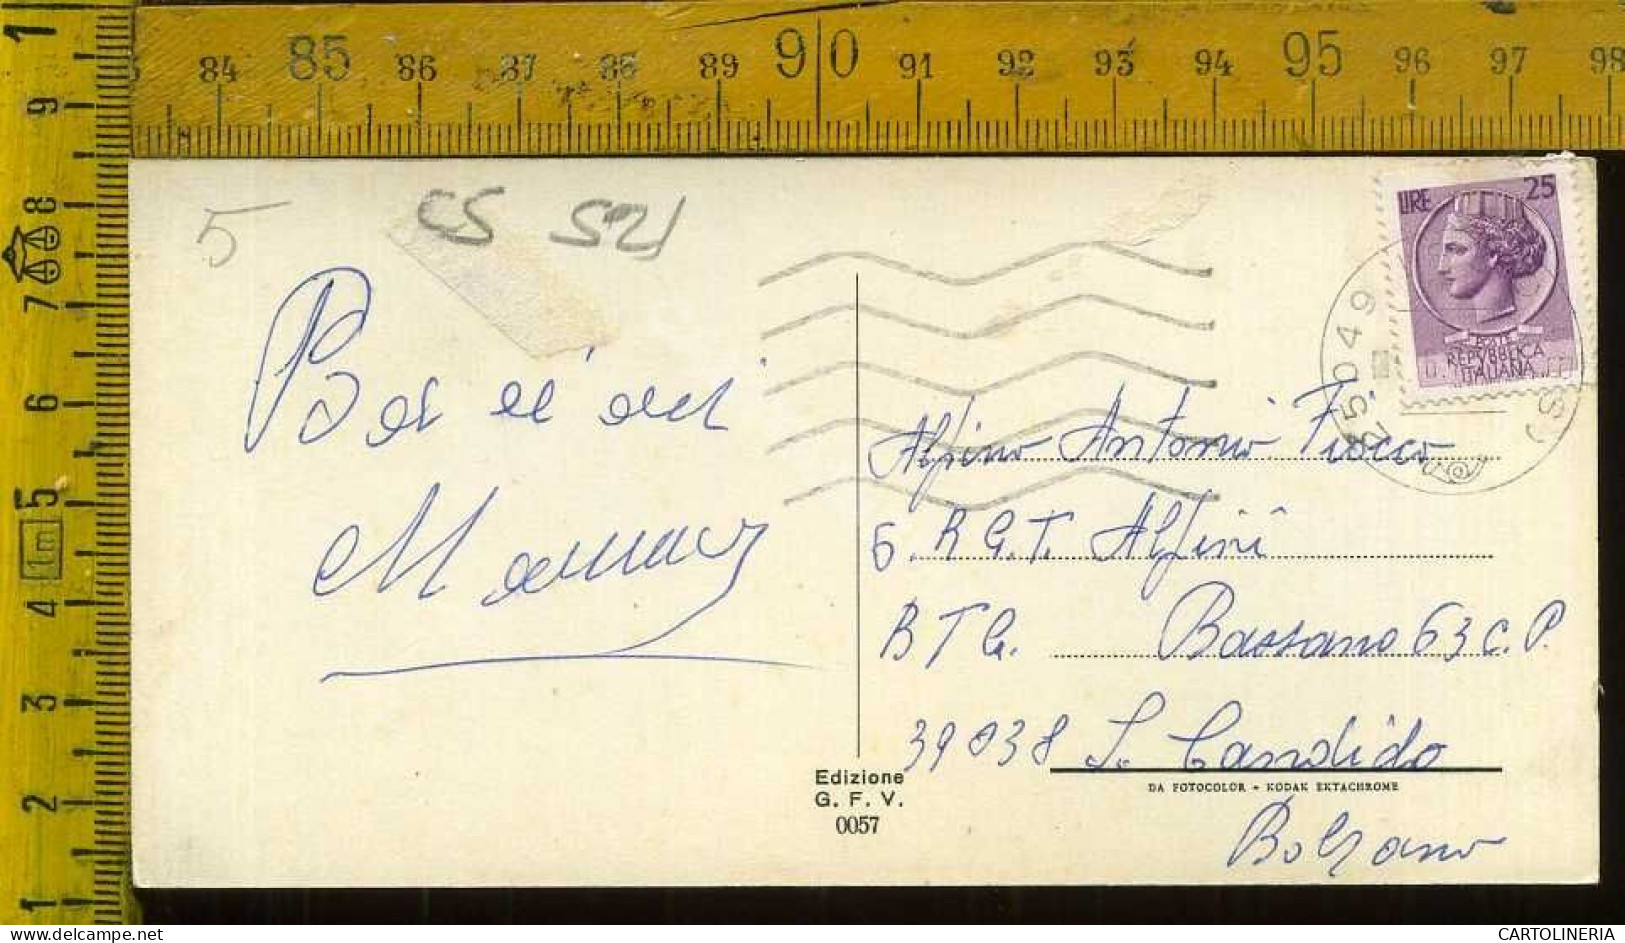 84 85 86 87 88 89 90 91 92 93 94 95 96 97 98
1
9
8
7
6
5
1m
4
3
2
1
5
CS 521
LIRE 25
REPVBBLICA
ITALIANA
25049
(BS)
Alpino Antonio Fiocco
6. RGT. Alpini
BTG. Bassano 63 C.P.
39038 S. Candido
Bolzano
Edizione
G. F. V.
0057
DA FOTOCOLOR - KODAK EKTACHROME
www.delcampe.net
CARTOLINERIA